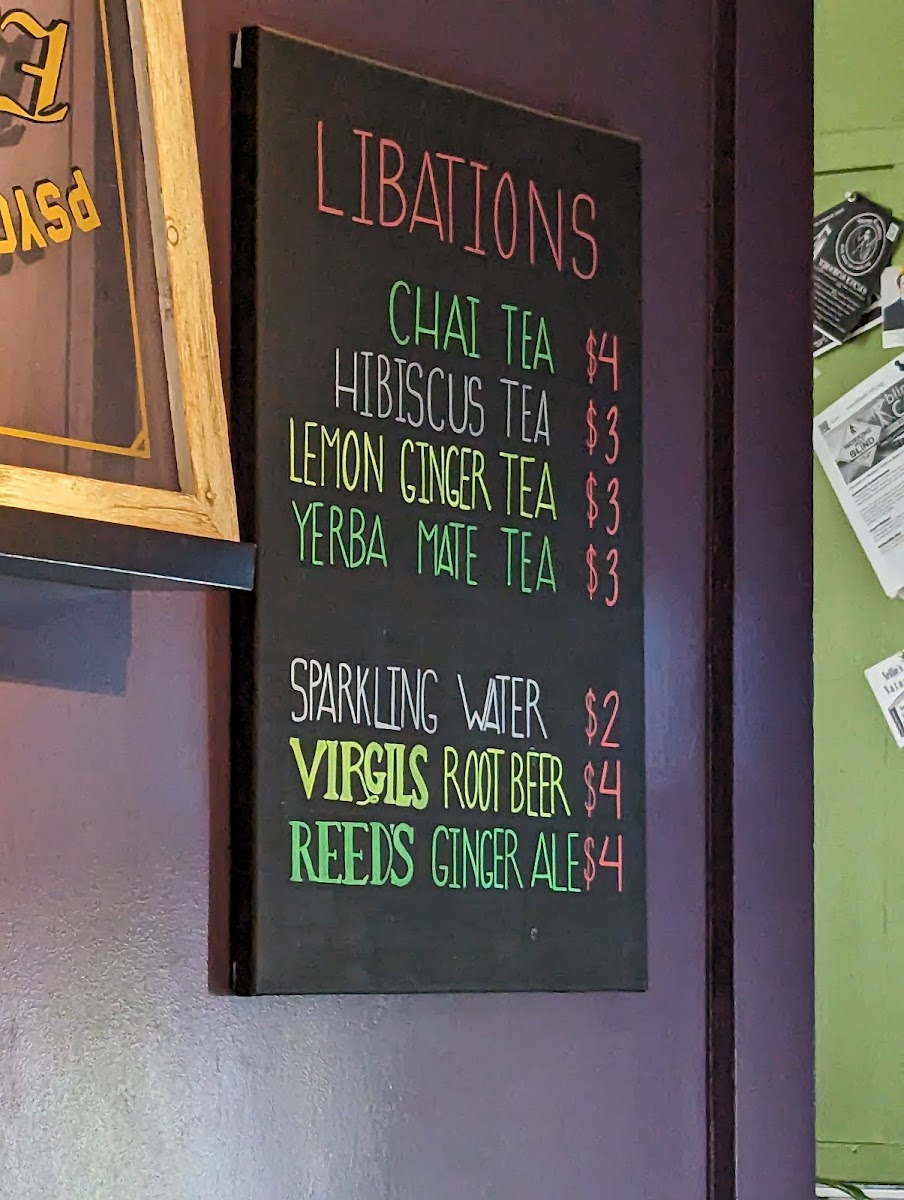 LIBATIONS
CHAI TEA $4
HIBISCUS TEA $3
LEMON GINGER TEA $3
YERBA MATE TEA $3
SPARKLING WATER $2
VIRGILS ROOT BEER $4
REED'S GINGER ALE $4
E
PSYC
BLIND